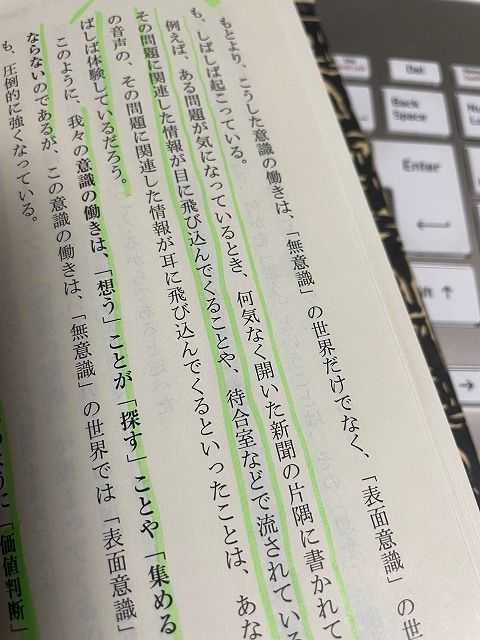 もとより、こうした意識の働きは、「無意識」の世界だけでなく、「表面意識」の世
も、しばしば起こっている。
例えば、ある問題が気になっているとき、何気なく開いた新聞の片隅に書かれて
その問題に関連した情報が目に飛び込んでくることや、待合室などで流されている
の音声の、その問題に関連した情報が耳に飛び込んでくるといったことは、あな
ばしば体験しているだろう。
このように、我々の意識の働きは、「想う」ことが「探す」ことや「集める
ならないのであるが、この意識の働きは、「無意識」の世界では「表面意識」
も、圧倒的に強くなっている。
に「価値判断」
Del
Back Space
Enter